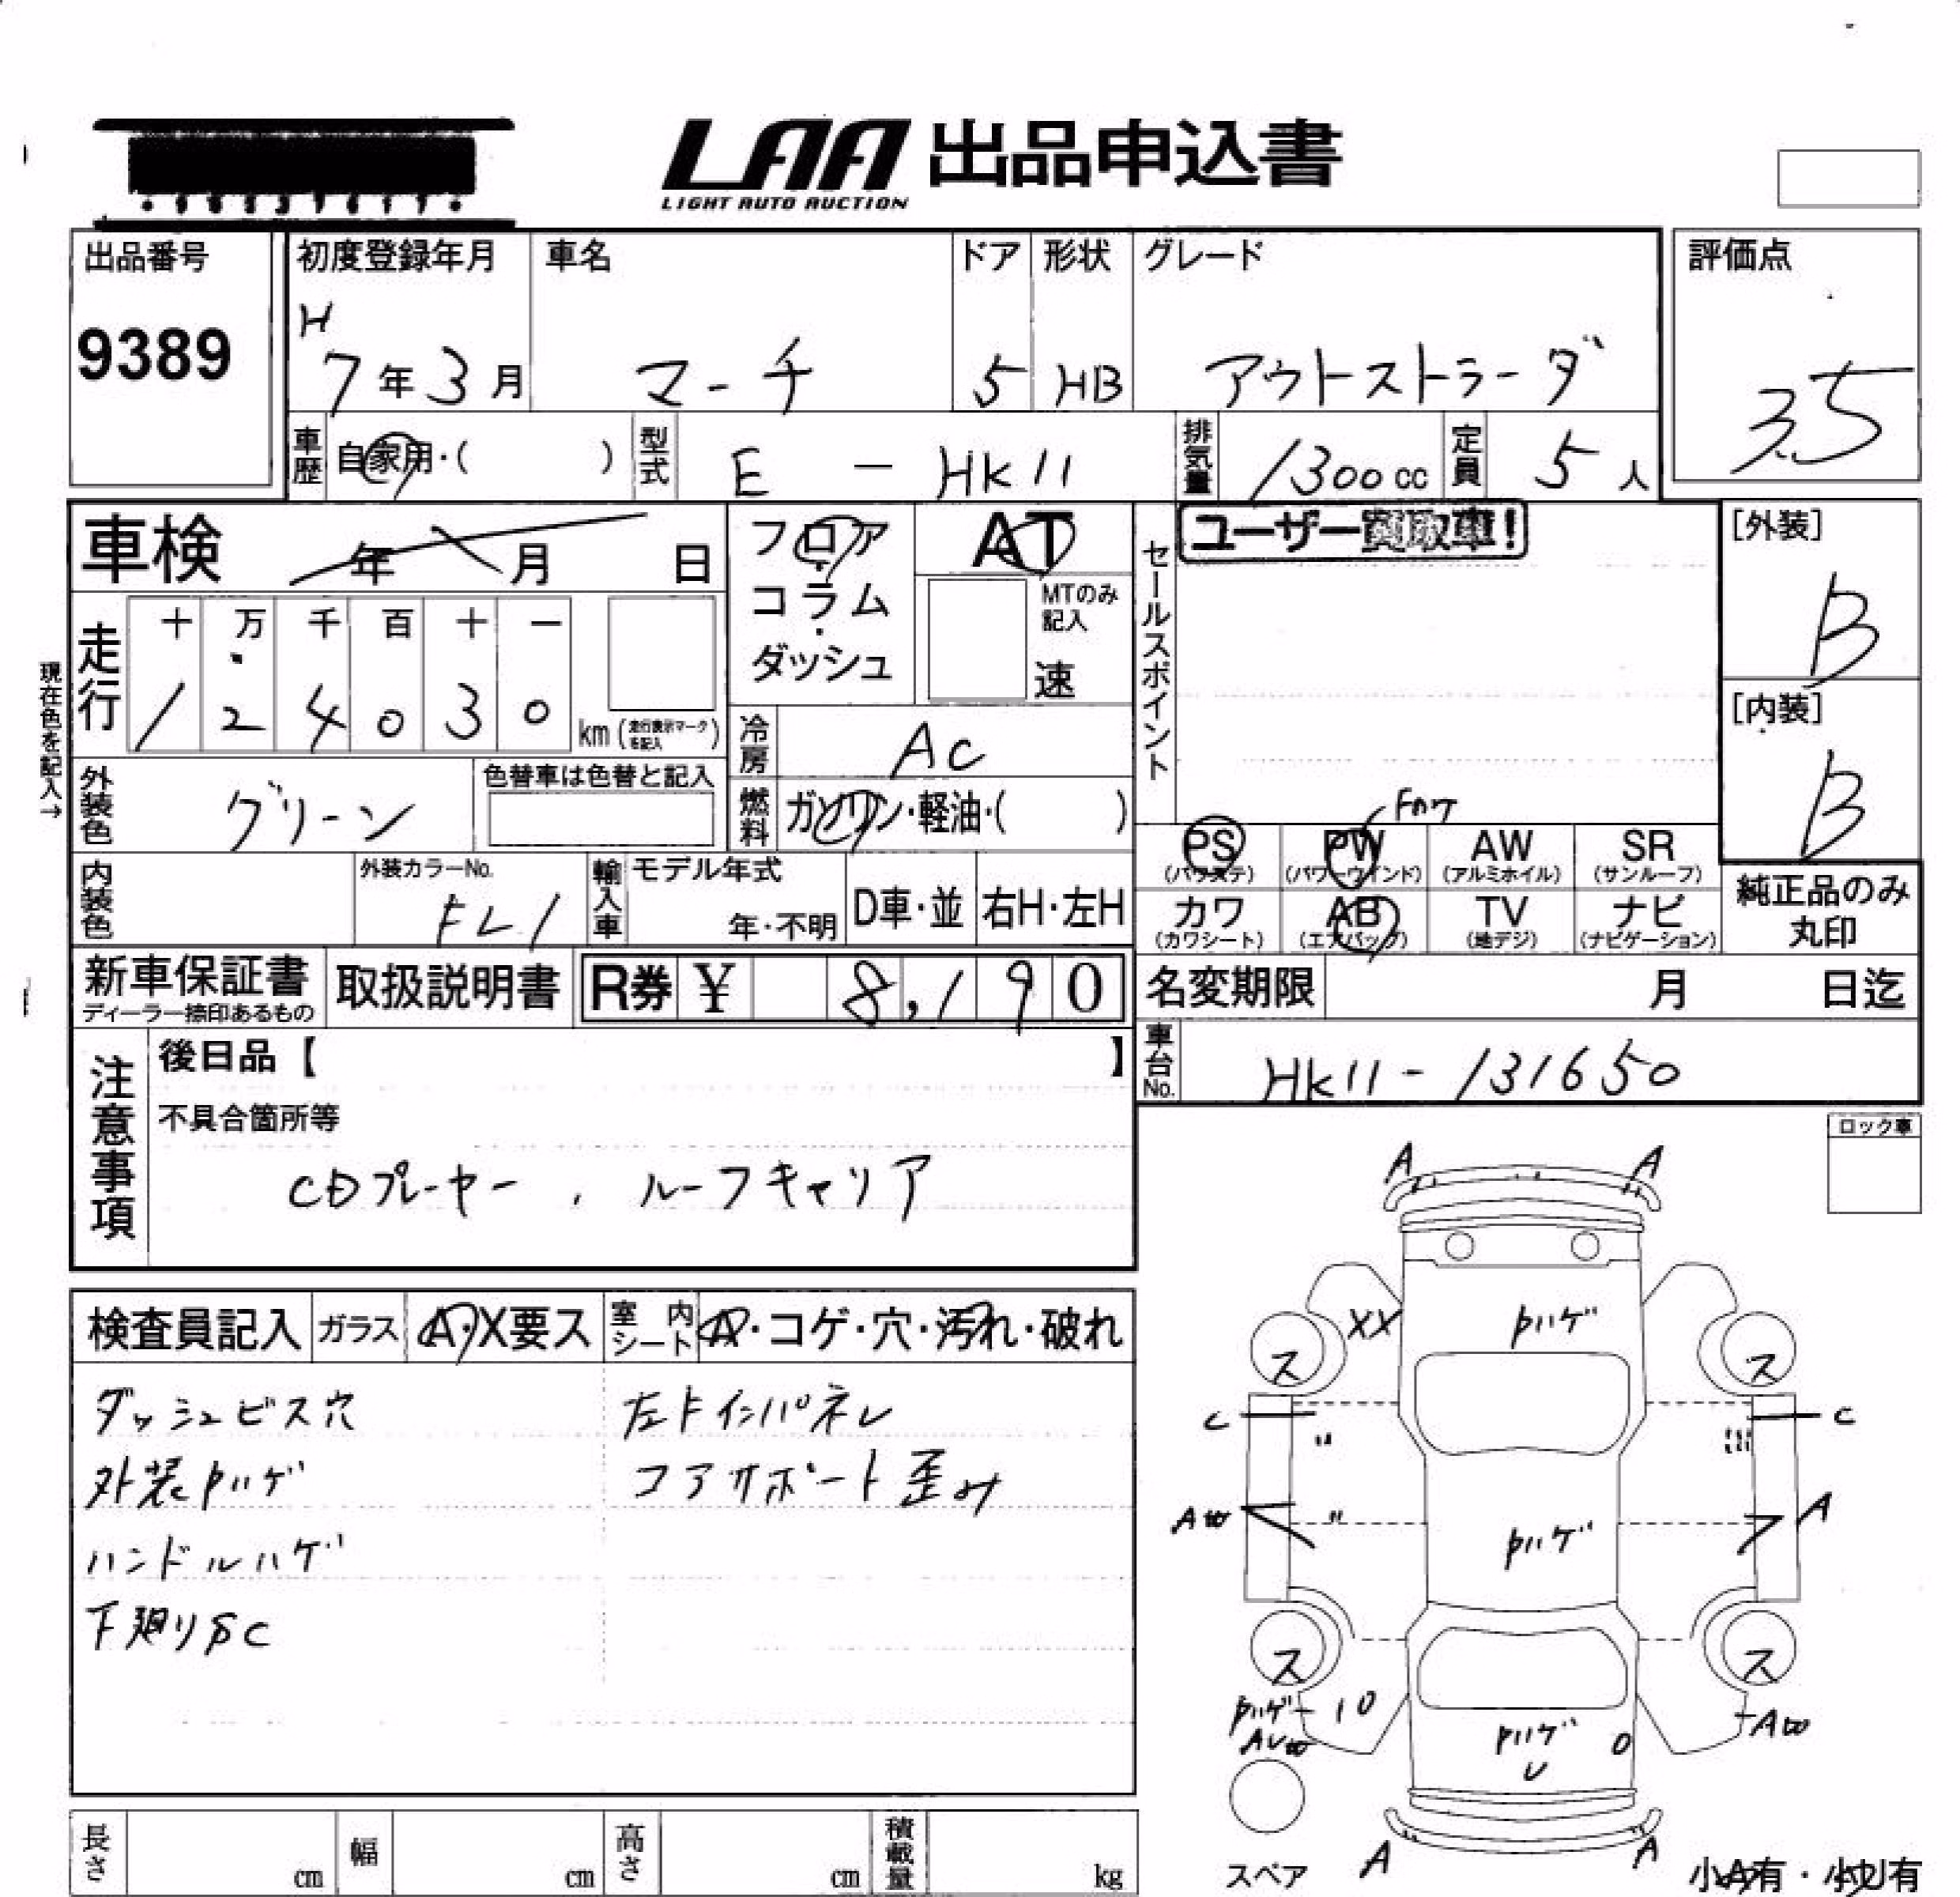 LAA 出品申込書
LIGHT AUTO AUCTION
出品番号 初度登録年月 車名 ドア 形状 グレード 評価点
9389 H 7年3月 マーチ 5 HB アウトストラーダ 3.5
車歴 自家用・( ) 型式 E - HK11 排気量 1300cc 定員 5人
車検 年 月 日 フロア・コラム・ダッシュ AT MTのみ記入 速
セールスポイント ユーザー買取車!
[外装] B
[内装] B
現在色を記入→
走行 十 万 千 百 十 一
1 2 4 0 3 0 km (走行表示マークを記入)
冷房 AC
外装色 グリーン 色替車は色替と記入 燃料 ガソリン・軽油・( )
Fのみ
PS (パワステ) PW (パワーウインド) AW (アルミホイル) SR (サンルーフ)
カワ (カワシート) AB (エアバッグ) TV (地デジ) ナビ (ナビゲーション)
純正品のみ丸印
内装色 外装カラーNo. FL1 輸入車 モデル年式 年・不明 D車・並 右H・左H
新車保証書 ディーラー捺印あるもの 取扱説明書 R券 ¥ 8,190 名変期限 月 日迄
車台No. HK11-131650
注意事項 後日品【 】
不具合箇所等
CDプレーヤー , ルーフキャリア
ロック車
検査員記入 ガラス A・X要ス 室内シート A・コゲ・穴・汚れ・破れ
ダッシュビス穴 左Fインパネレ
外装Pハゲ コアサポート歪み
ハンドルハゲ
下廻りSC
A A
XX Pハゲ
ス ス
C C
〃
A凹 〃 Pハゲ A
ス ス
Pハゲ 10
AU凹 Pハゲ U 0 A凹
A A
スペア
小A有・小U有
長さ cm 幅 cm 高さ cm 積載量 kg